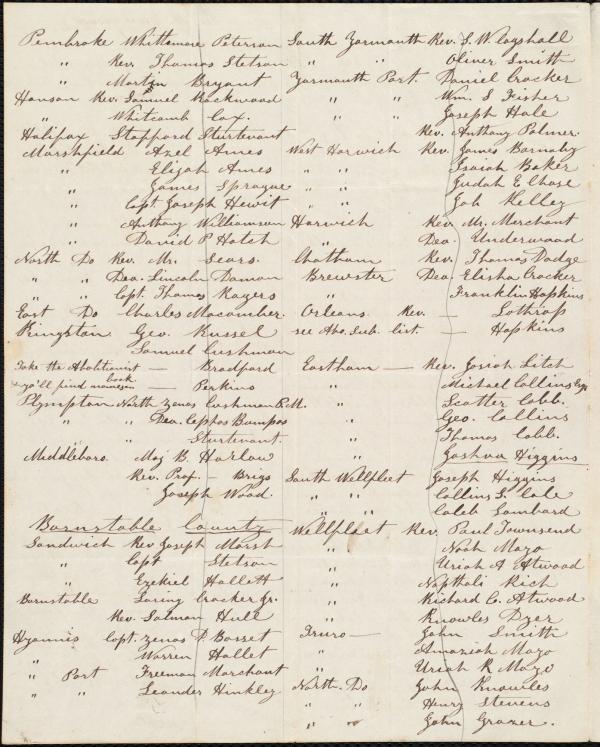 Pembroke Whittemore Peterson
" Rev. Thomas Stetson
" Martin Bryant
Hanson Rev. Samuel Rockwood
" Whitcomb Cox.
Halifax Stafford Sturtevant
Marshfield Azel Ames
" Elijah Ames
" James Sprague
" Capt Joseph Hewit
" Anthony Williamson
" David P Hatch
North Do Rev. Mr. Sears.
" " Dea. Lincoln Damon
" " Capt. Thomas Rogers
East Do Charles Macomber.
Kingston Geo. Russel
Samuel Cushman
Take the Abolitionist — Bradford
& yo'll find names in book — Perkins
Plympton North Zenas Cushman P.M.
" " Dea. Cephas Bumpas
" Sturtevant.
Middleboro. Maj B. Harlow
Rev. Prof. — Brigs
Joseph Wood.
Barnstable County
Sandwich Rev Joseph Marsh
" Capt Stetson
" Ezekiel Hallett
Barnstable Loring Crocker Jr.
Rev. Salman Hull
Hyannis Capt. Zenas D. Basset
" Warren Hallet
" Port Freeman Marchant
" " Leander Hinkley
South Yarmouth Rev. S. W.
" " Oliver Smith
Yarmouth Port. Daniel Crocker
" " Wm. S Fisher
" " Joseph Hale
Rev. Anthony Palmer.
West Harwich Rev. James Barnaby
" " Isaiah Baker
" " Judah E Chase
" " Job Kelley
Harwich Rev Mr. Merchant
" Dea. Underwood
Chatham Rev. Thomas Dodge
Brewster Dea Elisha Crocker
" Franklin Hopkins
Orleans Rev. — Lothrop
see Abo. Sub. list. — Hopkins
Eastham — Rev. Josiah Litch
" Michael Collins Esq
" Scotter Cobb.
" Geo. Collins
" Thomas Cobb.
" Joshua Higgins
South Wellfleet Joseph Higgins
" " Collins S. Cole
" " Caleb Lombard
Wellfleet Rev. Paul Townsend
" Noah Mayo
" Uriah A Atwood
" Napthali Rich
" Richard C. Atwood
" Knowles Dyer
Truro — John Smith
" Amaziah Mayo
" Uriah R Mayo
North. Do John Knowles
" " Henry Stevens
" " John Grozer.